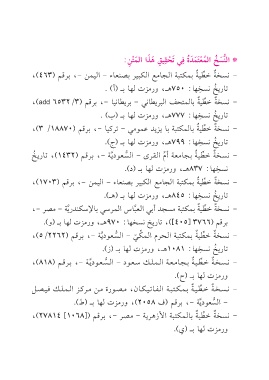 * النُّسَخُ المُعْتَمَدَةُ فِي تَحْقِيقِ هَذَا المَتْنِ:
- نسخةٌ خطِّيةٌ بمكتبة الجامع الكبير بصنعاء - اليمن -، برقم (٤٦٣)،
تاريخُ نسخِها: ٧٥٠هـ، ورمزت لها بـ (أ).
- نسخةٌ خطِّيةٌ بالمتحف البريطاني - بريطانيا -، برقم (٣/ ٦٥٣٢ add)،
تاريخُ نسخِها: ٧٧٧هـ، ورمزت لها بـ (ب).
- نسخةٌ خطِّيةٌ بالمكتبة با يزيد عمومي - تركيا -، برقم (١٨٨٧٠/ ٣)،
تاريخُ نسخِها: ٧٩٩هـ، ورمزت لها بـ (ج).
- نسخةٌ خطِّيةٌ بجامعة أمِّ القرى - السُّعوديَّة -، برقم (١٤٣٢)، تاريخُ
نسخِها: ٨٣٧هـ، ورمزت لها بـ (د).
- نسخةٌ خطِّيةٌ بمكتبة الجامع الكبير بصنعاء - اليمن -، برقم (١٧٠٣)،
تاريخُ نسخِها: ٨٤٥هـ، ورمزت لها بـ (هـ).
- نسخةٌ خطِّيةٌ بمكتبة مسجد أبي العبَّاس المرسي بالإسكندريَّة - مصر -،
برقم (٣٧٦٦ [٤٠٥])، تاريخ نسخها: ٩٧٠هـ، ورمزت لها بـ (و).
- نسخةٌ خطِّيةٌ بمكتبة الحرم المكِّيِّ - السُّعوديَّة -، برقم (٢٢٦٢/ ٥)،
تاريخُ نسخِها: ١٠٨١هـ، ورمزت لها بـ (ز).
- نسخةٌ خطِّيةٌ بجامعة الملك سعود - السُّعوديَّة -، برقم (٨١٨)،
ورمزت لها بـ (ح).
- نسخةٌ خطِّيةٌ بمكتبة الفاتيكان، مصورة من مركز الملك فيصل
- السُّعوديَّة -، برقم (ف ٢٠٥٨)، ورمزت لها بـ (ط).
- نسخةٌ خطِّيةٌ بالمكتبة الأزهرية - مصر -، برقم ([١٠٦٨] ٢٧٨١٤)،
ورمزت لها بـ (ي).